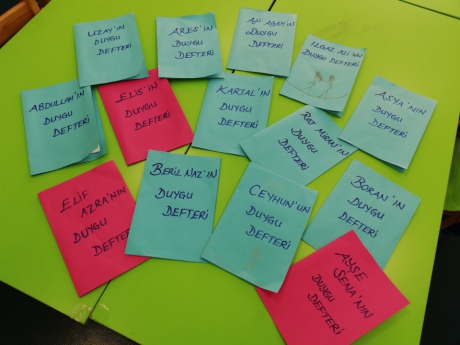 UZAY'IN
DUYGU
DEFTERİ
ARES'İN
DUYGU
DEFTERİ
ALİ AGAH'IN
DUYGU
DEFTERİ
ILGAZ ALİ'NİN
DUYGU DEFTERİ
ABDULLAH'IN
DUYGU
DEFTERİ
ELİS'İN
DUYGU
DEFTERİ
KARTAL'IN
DUYGU
DEFTERİ
ASYA'NIN
DUYGU
DEFTERİ
MİRAN'IN
DUYGU
DEFTERİ
ELİF
AZRA'NIN
DUYGU
DEFTERİ
BERİL NAZ'IN
DUYGU
DEFTERİ
CEYHUN'UN
DUYGU
DEFTERİ
BORAN'IN
DUYGU
DEFTERİ
AYŞE
SENA'NIN
DUYGU
DEFTERİ